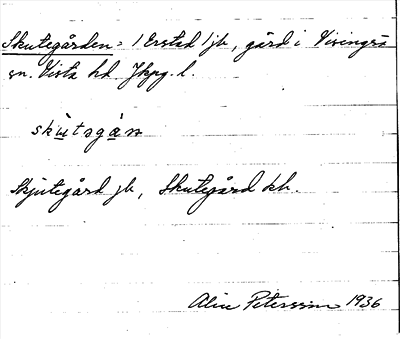 Skutegården = 1 Erstad 1 jb, gård i Visingsö
sn. Vista hd Jkpg. l.
skutsgån
Skjutegård jb, Skutegård kk.
Alice Petersson 1936